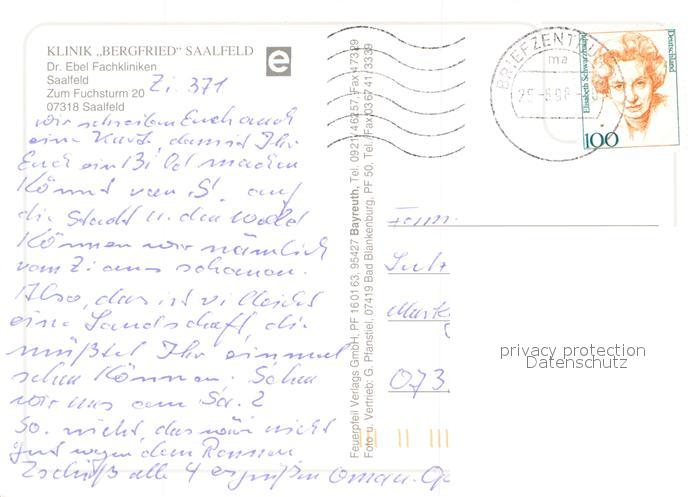 KLINIK „BERGFRIED" SAALFELD
Dr. Ebel Fachkliniken
Saalfeld
Zum Fuchsturm 20
07318 Saalfeld
Zi. 371
wir schreiben Euch auch
eine Karte, damit Ihr
Euch ein Bild machen
könnt von S. auf
die Stadt u. den Wald
können wir nämlich
vom Zi aus schauen.
Also, das ist vielleicht
eine Landschaft, die
müßtet Ihr einmal
sehen können. Sehen
wir uns am Sa. ?
So. nicht, das wär nicht
gut wegen dem Rennen
Tschüß alle 4
Feuerpfeil Verlags GmbH, PF 160163, 95427 Bayreuth, Tel. 0921/46257, Fax 47329
Foto u. Vertrieb: G. Pfanstiel, 07419 Bad Blankenburg, PF 50, Tel./Fax 036741/3339
BRIEFZENTRUM
ma
Elisabeth Schwarzhaupt
Deutschland
100
Fam.
073
privacy protection
Datenschutz